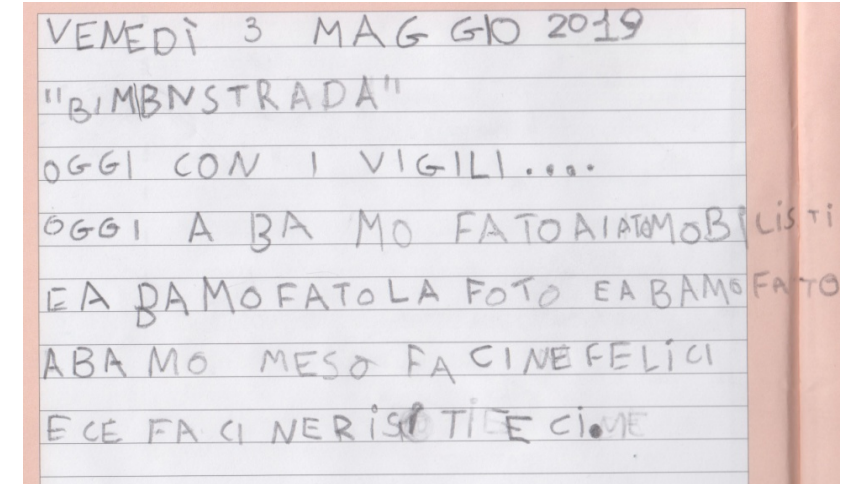 VENEDÌ 3 MAGGIO 2019
"BIMBNSTRADA"
OGGI CON I VIGILI....
OGGI A BA MO FATOAIATOMOBILISTI
EA BAMOFATOLA FOTO EABAMOFATO
ABA MO MESO FACINEFELICI
E CE FACINE